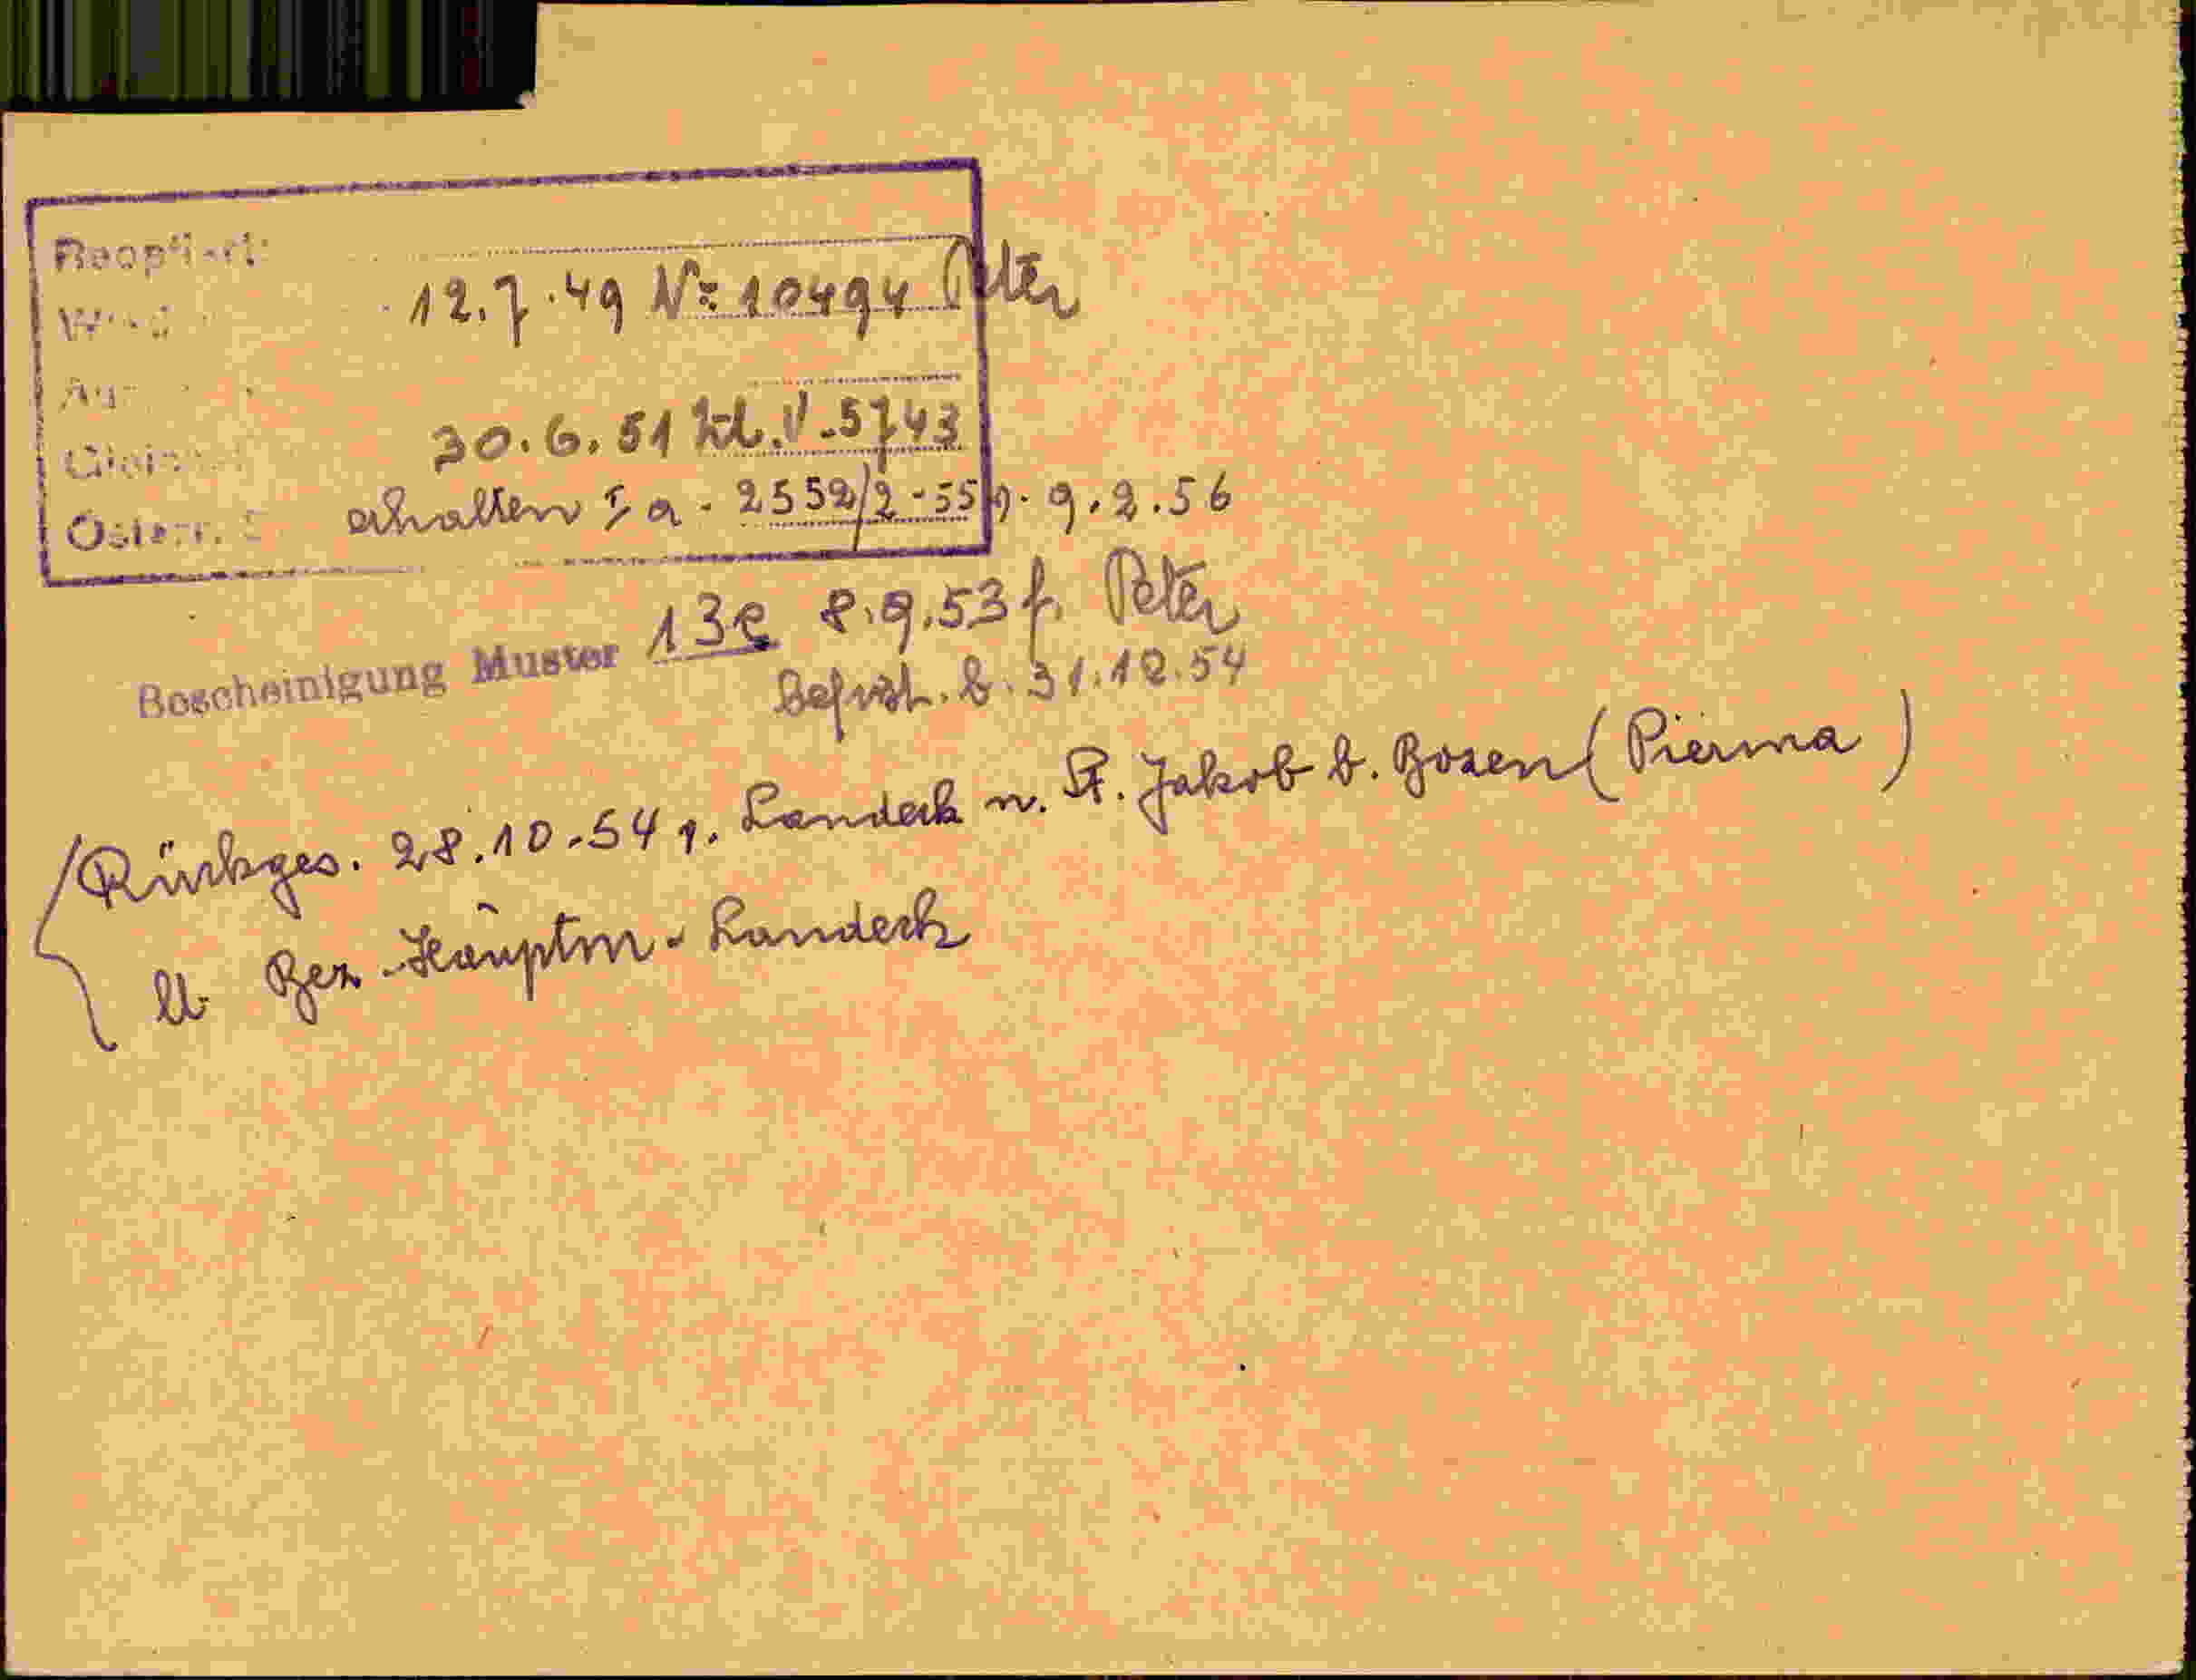 Reoptiert:
12.7.49 Nr. 10494 Peter
30.6.51 Zl. V-5743
Österr. erhalten I a - 2552/2-55 9.2.56
Bescheinigung Muster 13e 8.9.53 f. Peter
Befrist. b. 31.12.54
Rückges. 28.10.54 v. Landeck n. St. Jakob b. Bozen (
lt. Bez.-Hauptm. Landeck